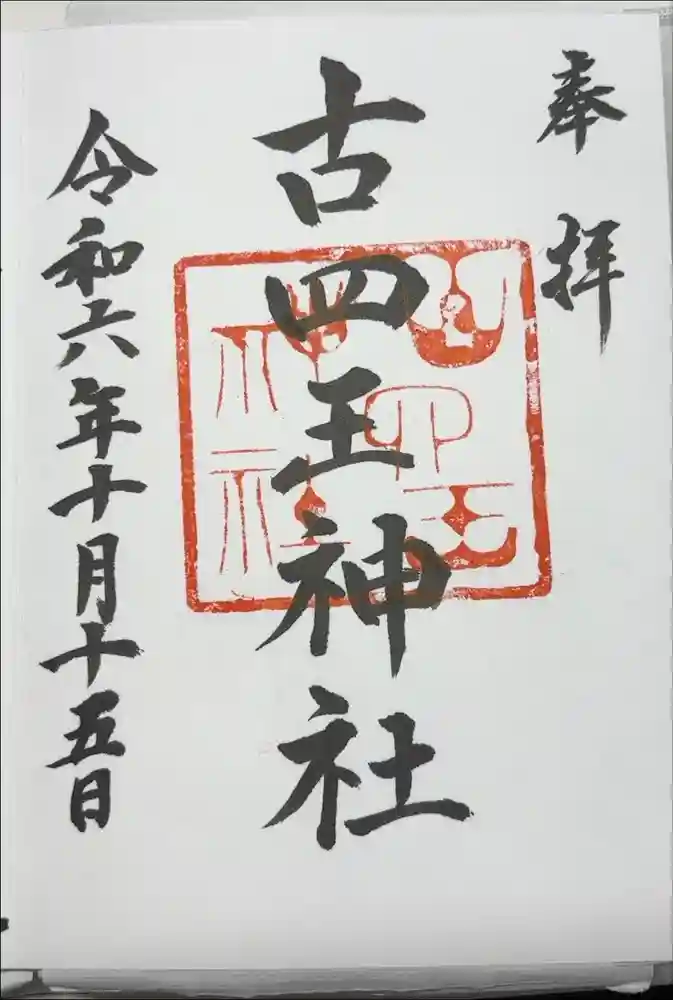 奉拝
古四王神社
令和六年十月十五日